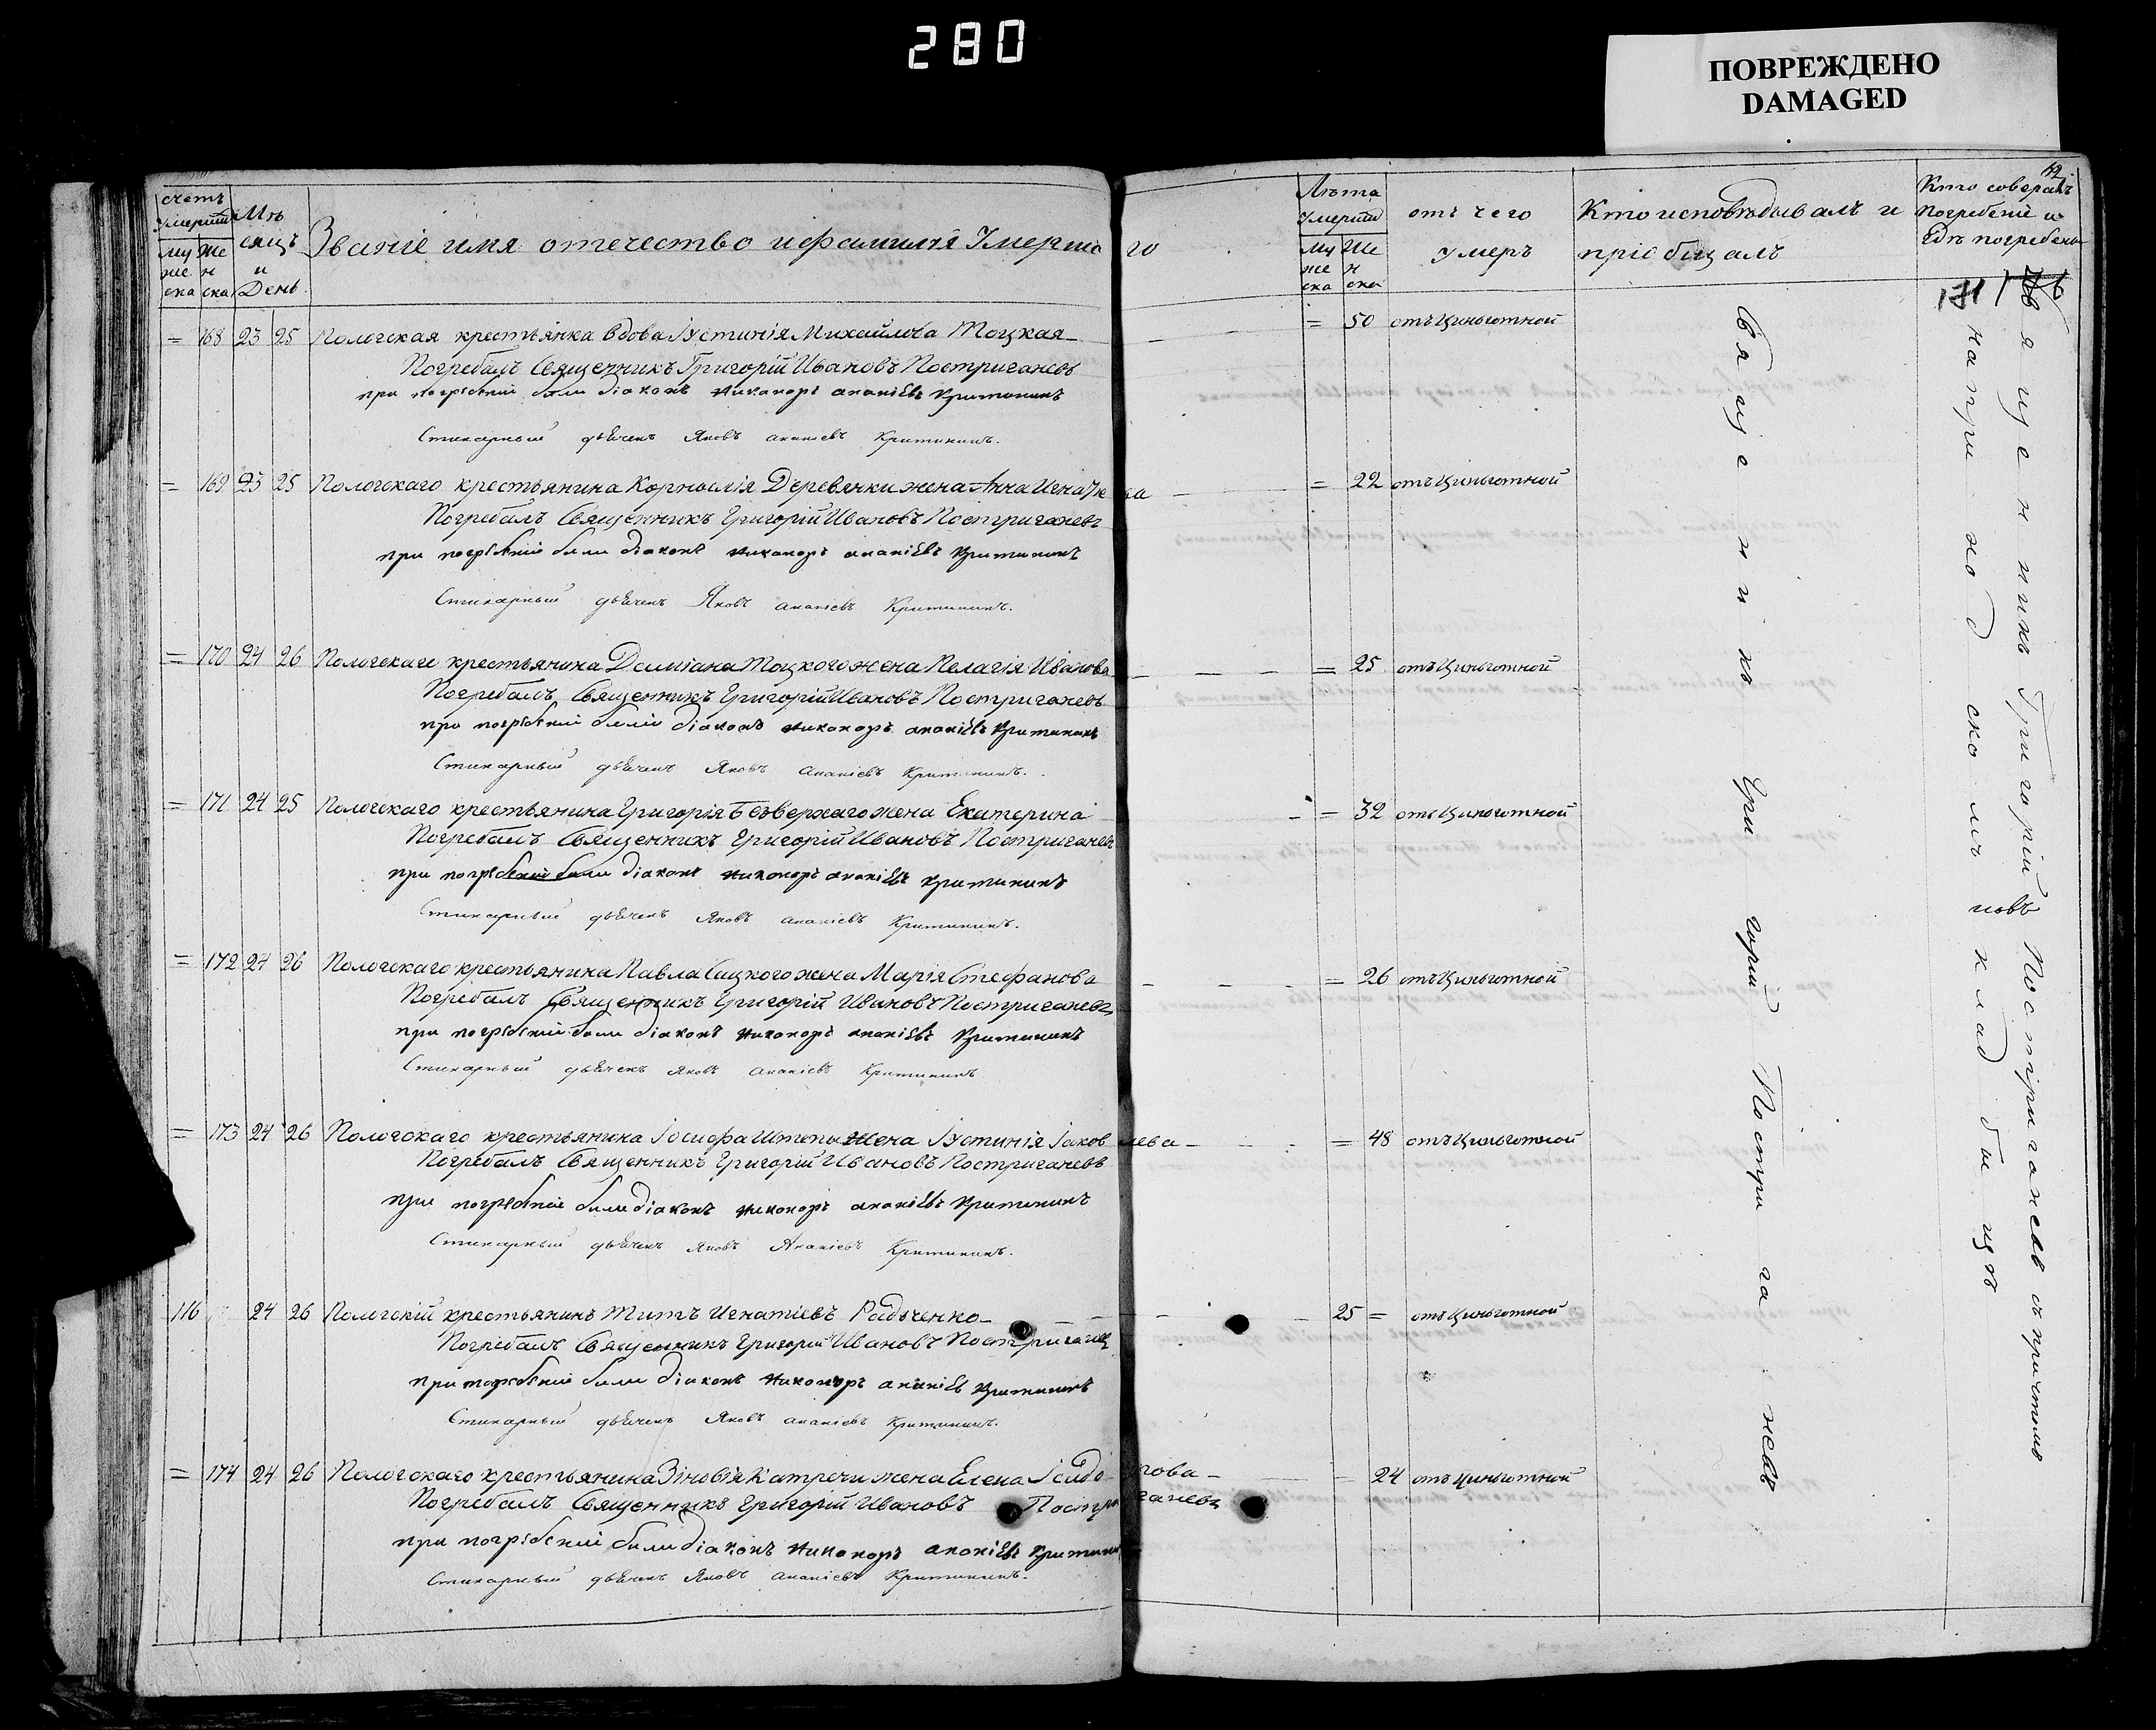 280
ПОВРЕЖДЕНО
DAMAGED
счетъ умерши
Мѣсяцъ и День
Званіе имя отечество и фамилія Умершаго
Лѣта умерши
отъ чего умеръ
Кто исповѣдывалъ и пріобщалъ
Кто соверялъ погребеніе и гдѣ погребены
муже ска Же н ска
муже ска Же н ска
= 168 23 25 Пологская крестьянка вдова Іустинія Михайлова Тоцкая = 50 отъ Цынготной
Погребалъ Священникъ Григорій Ивановъ Постригачевъ
при погребеніи были діаконъ Никаноръ Ананіевъ Критининъ
Стихарный дьячекъ Яковъ Ананіевъ Критининъ.
= 169 23 25 Пологскаго крестьянина Корнилія Деревянки жена Анна = 22 отъ Цынготной
Погребалъ Священникъ Григорій Ивановъ Постригачевъ
при погребеніи были діаконъ Никаноръ Ананіевъ Критининъ
Стихарный дьячекъ Яковъ Ананіевъ Критининъ.
= 170 24 26 Пологскаго крестьянина Доміана Тоцкого жена Пелагія Иванова = 25 отъ Цынготной
Погребалъ Священникъ Григорій Ивановъ Постригачевъ
при погребеніи были діаконъ Никаноръ Ананіевъ Критининъ
Стихарный дьячекъ Яковъ Ананіевъ Критининъ.
= 171 24 25 Пологскаго крестьянина Григорія Безверхаго жена Екатерина = 32 отъ Цынготной
Погребалъ Священникъ Григорій Ивановъ Постригачевъ
при погребеніи были діаконъ Никаноръ Ананіевъ Критининъ
Стихарный дьячекъ Яковъ Ананіевъ Критининъ.
= 172 24 26 Пологскаго крестьянина Павла Сацкого жена Марія Стефанова = 26 отъ Цынготной
Погребалъ Священникъ Григорій Ивановъ Постригачевъ
при погребеніи были діаконъ Никаноръ Ананіевъ Критининъ
Стихарный дьячекъ Яковъ Ананіевъ Критининъ
= 173 24 26 Пологскаго крестьянина Іосифа Штепы жена Іустинія Іаковлева = 48 отъ Цынготной
Погребалъ Священникъ Григорій Ивановъ Постригачевъ
при погребеніи были діаконъ Никаноръ Ананіевъ Критининъ
Стихарный дьячекъ Яковъ Ананіевъ Критининъ.
116 24 26 Пологскій крестьянинъ Титъ Игнатіевъ Радченко 25 = отъ Цынготной
Погребалъ Священникъ Григорій Ивановъ
при погребеніи были діаконъ Никаноръ Ананіевъ Критининъ
Стихарный дьячекъ Яковъ Ананіевъ Критининъ.
= 174 24 26 Пологскаго крестьянина Зіновія жена Елена = 24 отъ Цынготной
Погребалъ Священникъ Григорій Ивановъ Постригачевъ
при погребеніи были діаконъ Никаноръ Ананіевъ
Стихарный дьячекъ Яковъ Ананіевъ Критининъ.
Священникъ Григорій Постригачевъ
Священникъ Григорій Постригачевъ съ причтомъ
на приходскомъ кладбищѣ